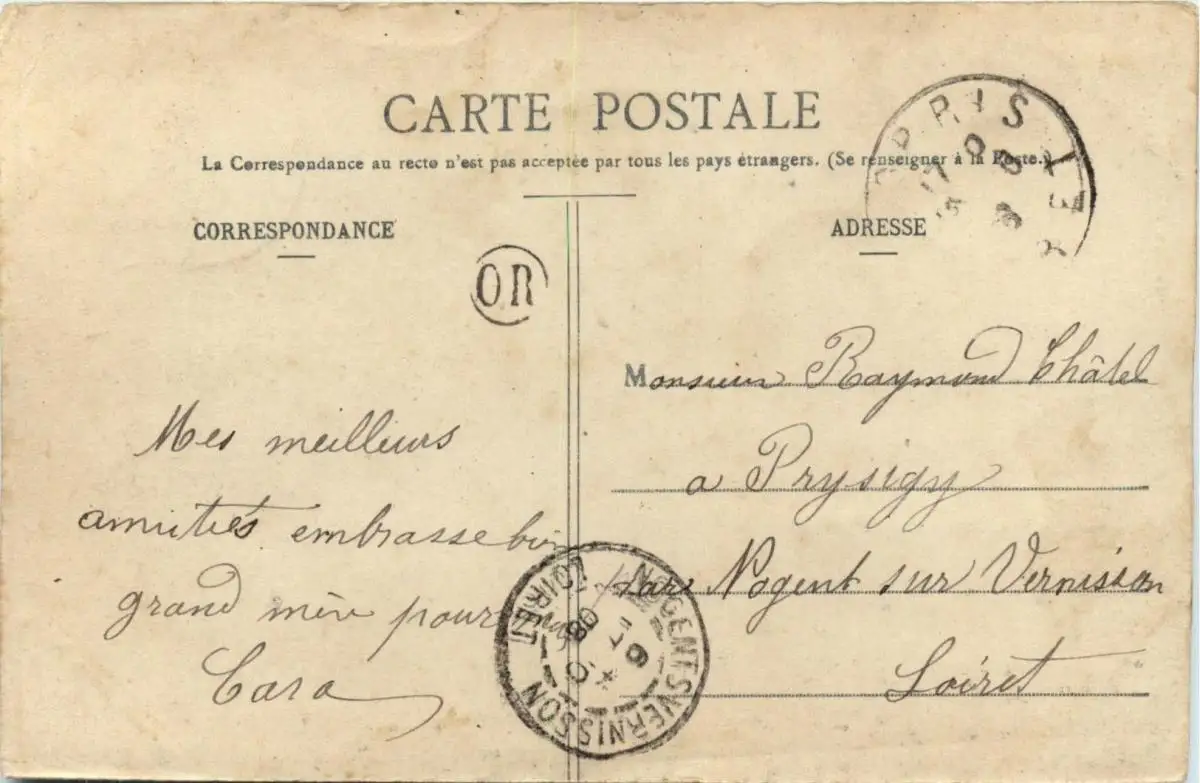 CARTE POSTALE
La Correspondance au recto n'est pas acceptée par tous les pays étrangers. (Se renseigner à la Poste.)
CORRESPONDANCE
ADRESSE
OR
Mes meilleurs
amitiés embrasse bien
grand mère pour
Cara
Monsieur Raymond Châtel
a Prysigy
par Nogent sur Vernisson
Loiret
NOGENT S VERNISSON
LOIRET